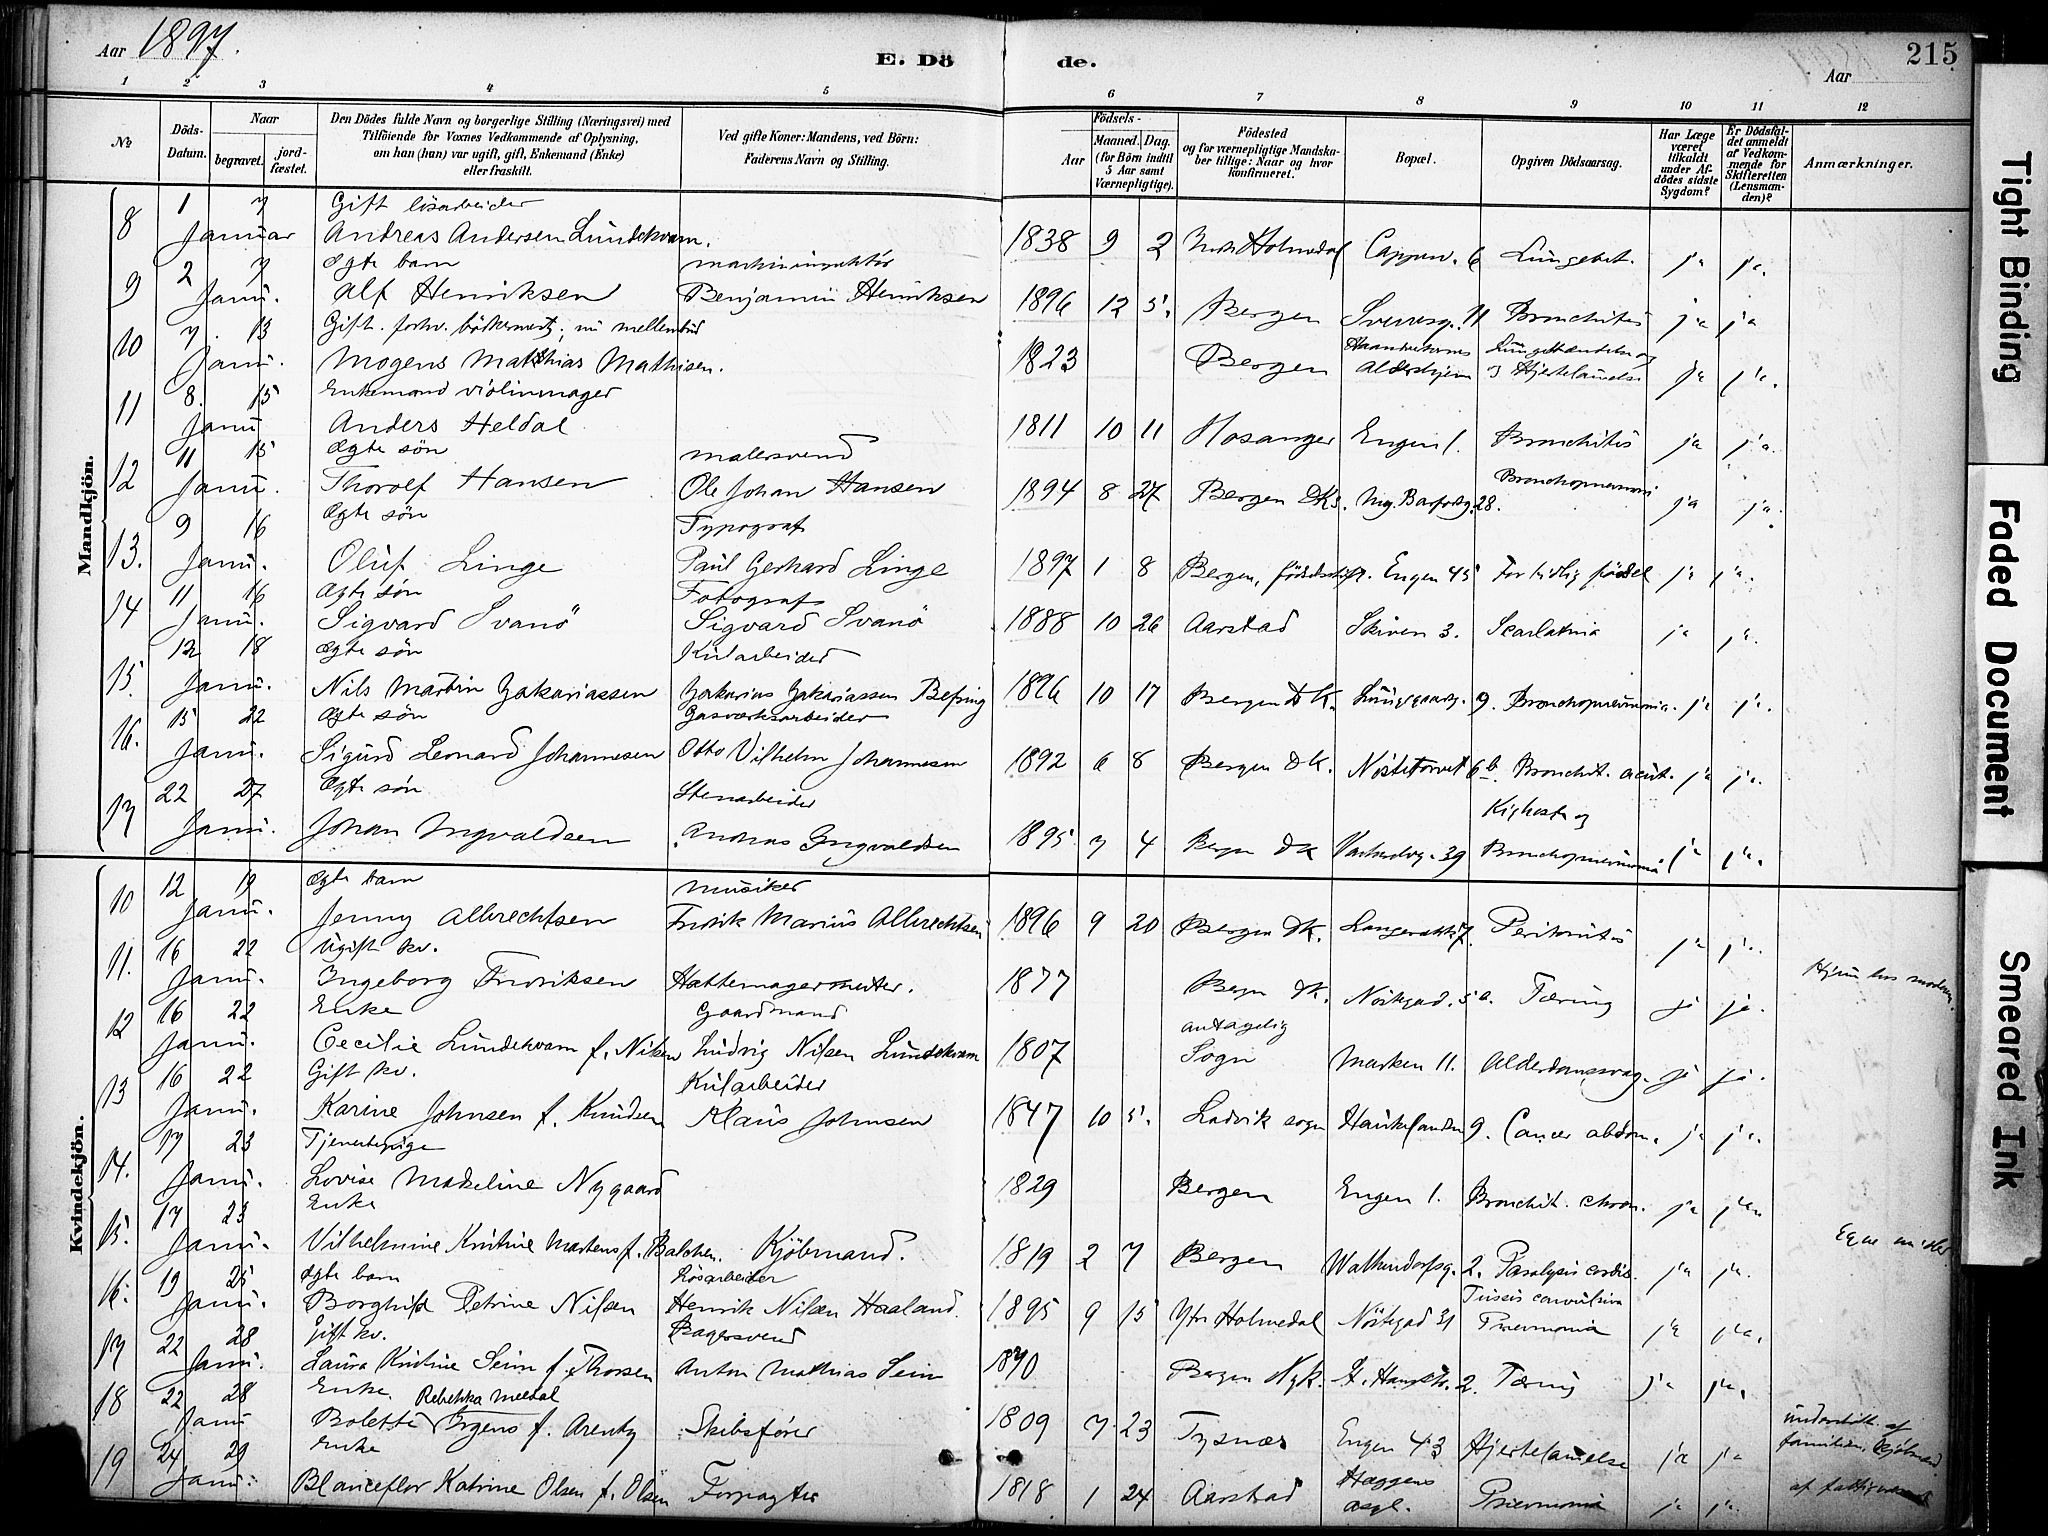 Aar 1897.
E. Dö de.
Aar
215
1 2 3 4 5 6 7 8 9 10 11 12
No
Döds-Datum.
Naar
begravet.
jord-fæstet.
Den Dödes fulde Navn og borgerlige Stilling (Næringsvei) med
Tilföiende for Voxnes Vedkommende af Oplysning,
om han (hun) var ugift, gift, Enkemand (Enke)
eller fraskilt.
Ved gifte Koner: Mandens, ved Börn:
Faderens Navn og Stilling.
Födsels-
Aar
Maaned. Dag.
(for Börn indtil
5 Aar samt
Værnepligtige).
Födested
og for værnepligtige Mandska-
ber tillige: Naar og hvor
konfirmeret.
Bopæl.
Opgiven Dödsaarsag.
Har Læge
været
tilkaldt
under Af-
dödes sidste
Sygdom?
Er Dödsfal-
det anmeldt
af Vedkom-
mende for
Skifteretten
(Lensman-
den)?
Anmærkninger.
Mandkjön.
8 1 7 Gift lösarbeider
Januar Andreas Andersen Lundekvam. 1838 9 2 Holmedal Cappev. 6 Lungebet. ja ja.
9 2 7 Ægte barn
Janu. Alf Henriksen Benjamin Henriksen 1896 12 5. Bergen Sverresg. 11 Bronchitis ja ja
10 7. 13 Gift. forhv.
Janu. Mogens Matthias Mathisen. 1823 Bergen Alderhjem Hjertelamelse ja ja.
11 8. 15 Enkemand violinmager
Janu Anders Heldal 1811 10 11 Hosanger Engen 1. Bronchitis ja ja.
12 11 15 Ægte sön malersvend
Janu. Thorolf Hansen Ole Johan Hansen 1894 8 27 Bergen DK. 28. Bronchopneumoni ja ja.
13. 9 16 Ægte sön Typograf
Janu. Oluf Linge Paul Gerhard Linge 1897 1 8 Bergen, Engen 45 For tidlig födsel ja ja.
14 11 16 Ægte sön Fotograf
Janu. Sigvard Svanö Sigvard Svanö 1888 10 26 Aarstad Skiven 3. Scarlatina ja ja.
15. 12 18 Ægte sön Kularbeider
Janu. Nils Martin Zakariassen Zakarias Zakariassen 1896 10 17 Bergen DK. 9. Bronchopneumonia. ja ja.
16. 15 22 Ægte sön Gasværksarbeider
Janu. Sigurd Leonard Johannesen Otto Vilhelm Johannesen 1892 6 8 Bergen DK. Nöstetorvet 6b. Bronchit. acut. ja ja.
17 22 27 Ægte sön Stenarbeider
Janu. Johan Ingvaldsen Andreas Ingvaldsen 1895 7 4 Bergen DK 39 Kighoste og Bronchopneumonia ja ja.
Kvindekjön.
10 12 19 Ægte barn musiker
Janu. Jenny Albrechtsen Fredrik Marius Albrechtsen 1896 9 20 Bergen DK. 7. Peritonitis ja ja.
11. 16 22 Ugift kv.
Janu. Ingeborg Fredriksen Hattemagermester. 1877 Bergen DK. Nöstegad. 5a. Tæring ja ja. Hjem hos moderen.
12 16 22 Enke Gaardmand
Janu. Cecilie Lundekvam f. Nilsen Ludvig Nilsen Lundekvam 1807 antagelig Sogn Marken 11. Alderdomssvag. ja ja.
13 16 22 Gift kv. Kularbeider
Janu. Karine Johnsen f. Knudsen Klaus Johnsen 1847 10 5. Ladvik sogn Haukelanden 9. Cancer abdom. ja ja.
14. 17 23 Tjenestepige
Janu. Lovise Madeline Nygaard 1829 Bergen Engen 1. Bronchit. chron. ja ja.
15. 17 23 Enke
Janu. Vilhelmine Kristine Martens f. Balchen. Kjöbmand. 1819 2 7 Bergen Walkendorfsg. 2. Paralysis cordis. ja ja. Egne midler
16. 19 25 Ægte barn Lösarbeider
Janu. Borghild Petrine Nilsen Henrik Nilsen Haaland. 1895 9 15 Ytre Holmedal Nöstegad 31 Tussis convulsiva Pneumonia ja ja.
17 22 28 Gift kv. Bagersvend
Janu. Laura Kristine Seim f. Thorsen Anton Mathias Seim 1870 Bergen Nyk. 2. Tæring ja ja.
18 22 28 Enke. Rebekka Meldal
Janu Bolette Irgens f. Arentz Skibsförer 1809 7. 23 Tysnæs Engen 43 Hjertelamelse ja ja understött. af familien.
19 24 29 Enke
Janu. Blanceflor Katrine Olsen f. Olsen Forpagter 1818 1 24 Aarstad Hæggens asyl. Pneumonia ja ja. af
Tight Binding
Faded Document
Smeared Ink